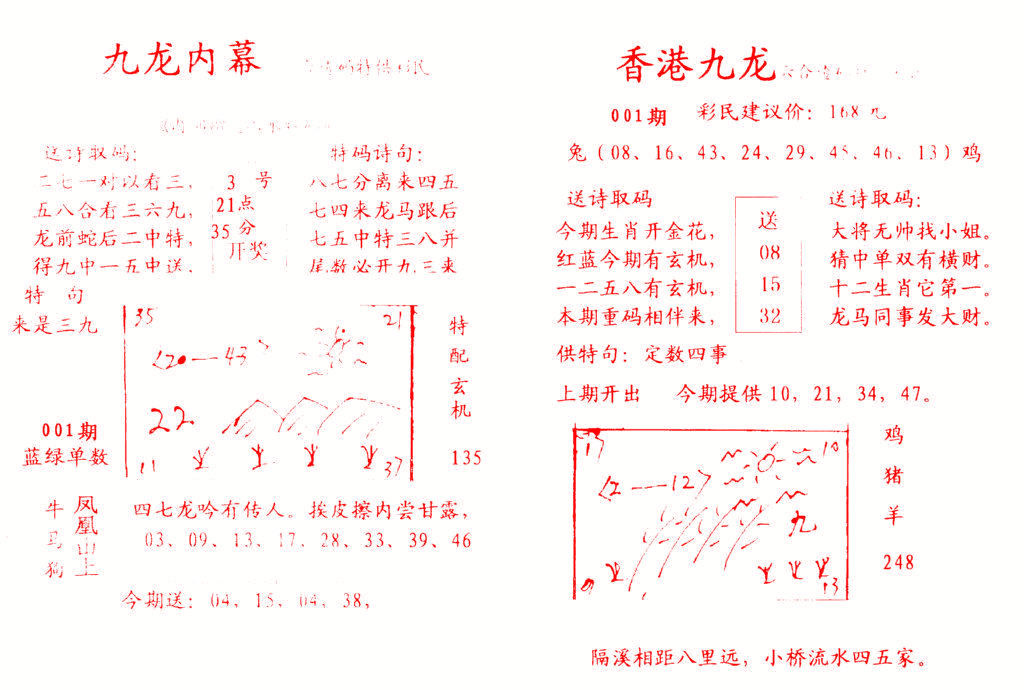 九龙内幕
送诗取码:
二七一对以看三,
五八合看三六九,
龙前蛇后二中特,
得九中一五中送,
3 号
21点
35 分
开奖
特码诗句:
八七分离来四五
七四来龙马跟后
七五中特三八并
尾数必开九三来
特 句
来是三九
35
21
<20—43>
22
11
37
特配玄机
135
001期
蓝绿单数
牛马狗
凤凰山上
四七龙吟有传人。挨皮擦内尝甘露,
03、09、13、17、28、33、39、46
今期送: 04, 15, 04, 38,
香港九龙
001期 彩民建议价: 168 元
兔 (08、16、43、24、29、45、46、13) 鸡
送诗取码
今期生肖开金花,
红蓝今期有玄机,
一二五八有玄机,
本期重码相伴来,
送
08
15
32
送诗取码:
大将无帅找小姐。
猜中单双有横财。
十二生肖它第一。
龙马同事发大财。
供特句: 定数四事
上期开出 今期提供 10, 21, 34, 47。
17
10
<2—12>
九
13
鸡
猪
羊
248
隔溪相距八里远, 小桥流水四五家。